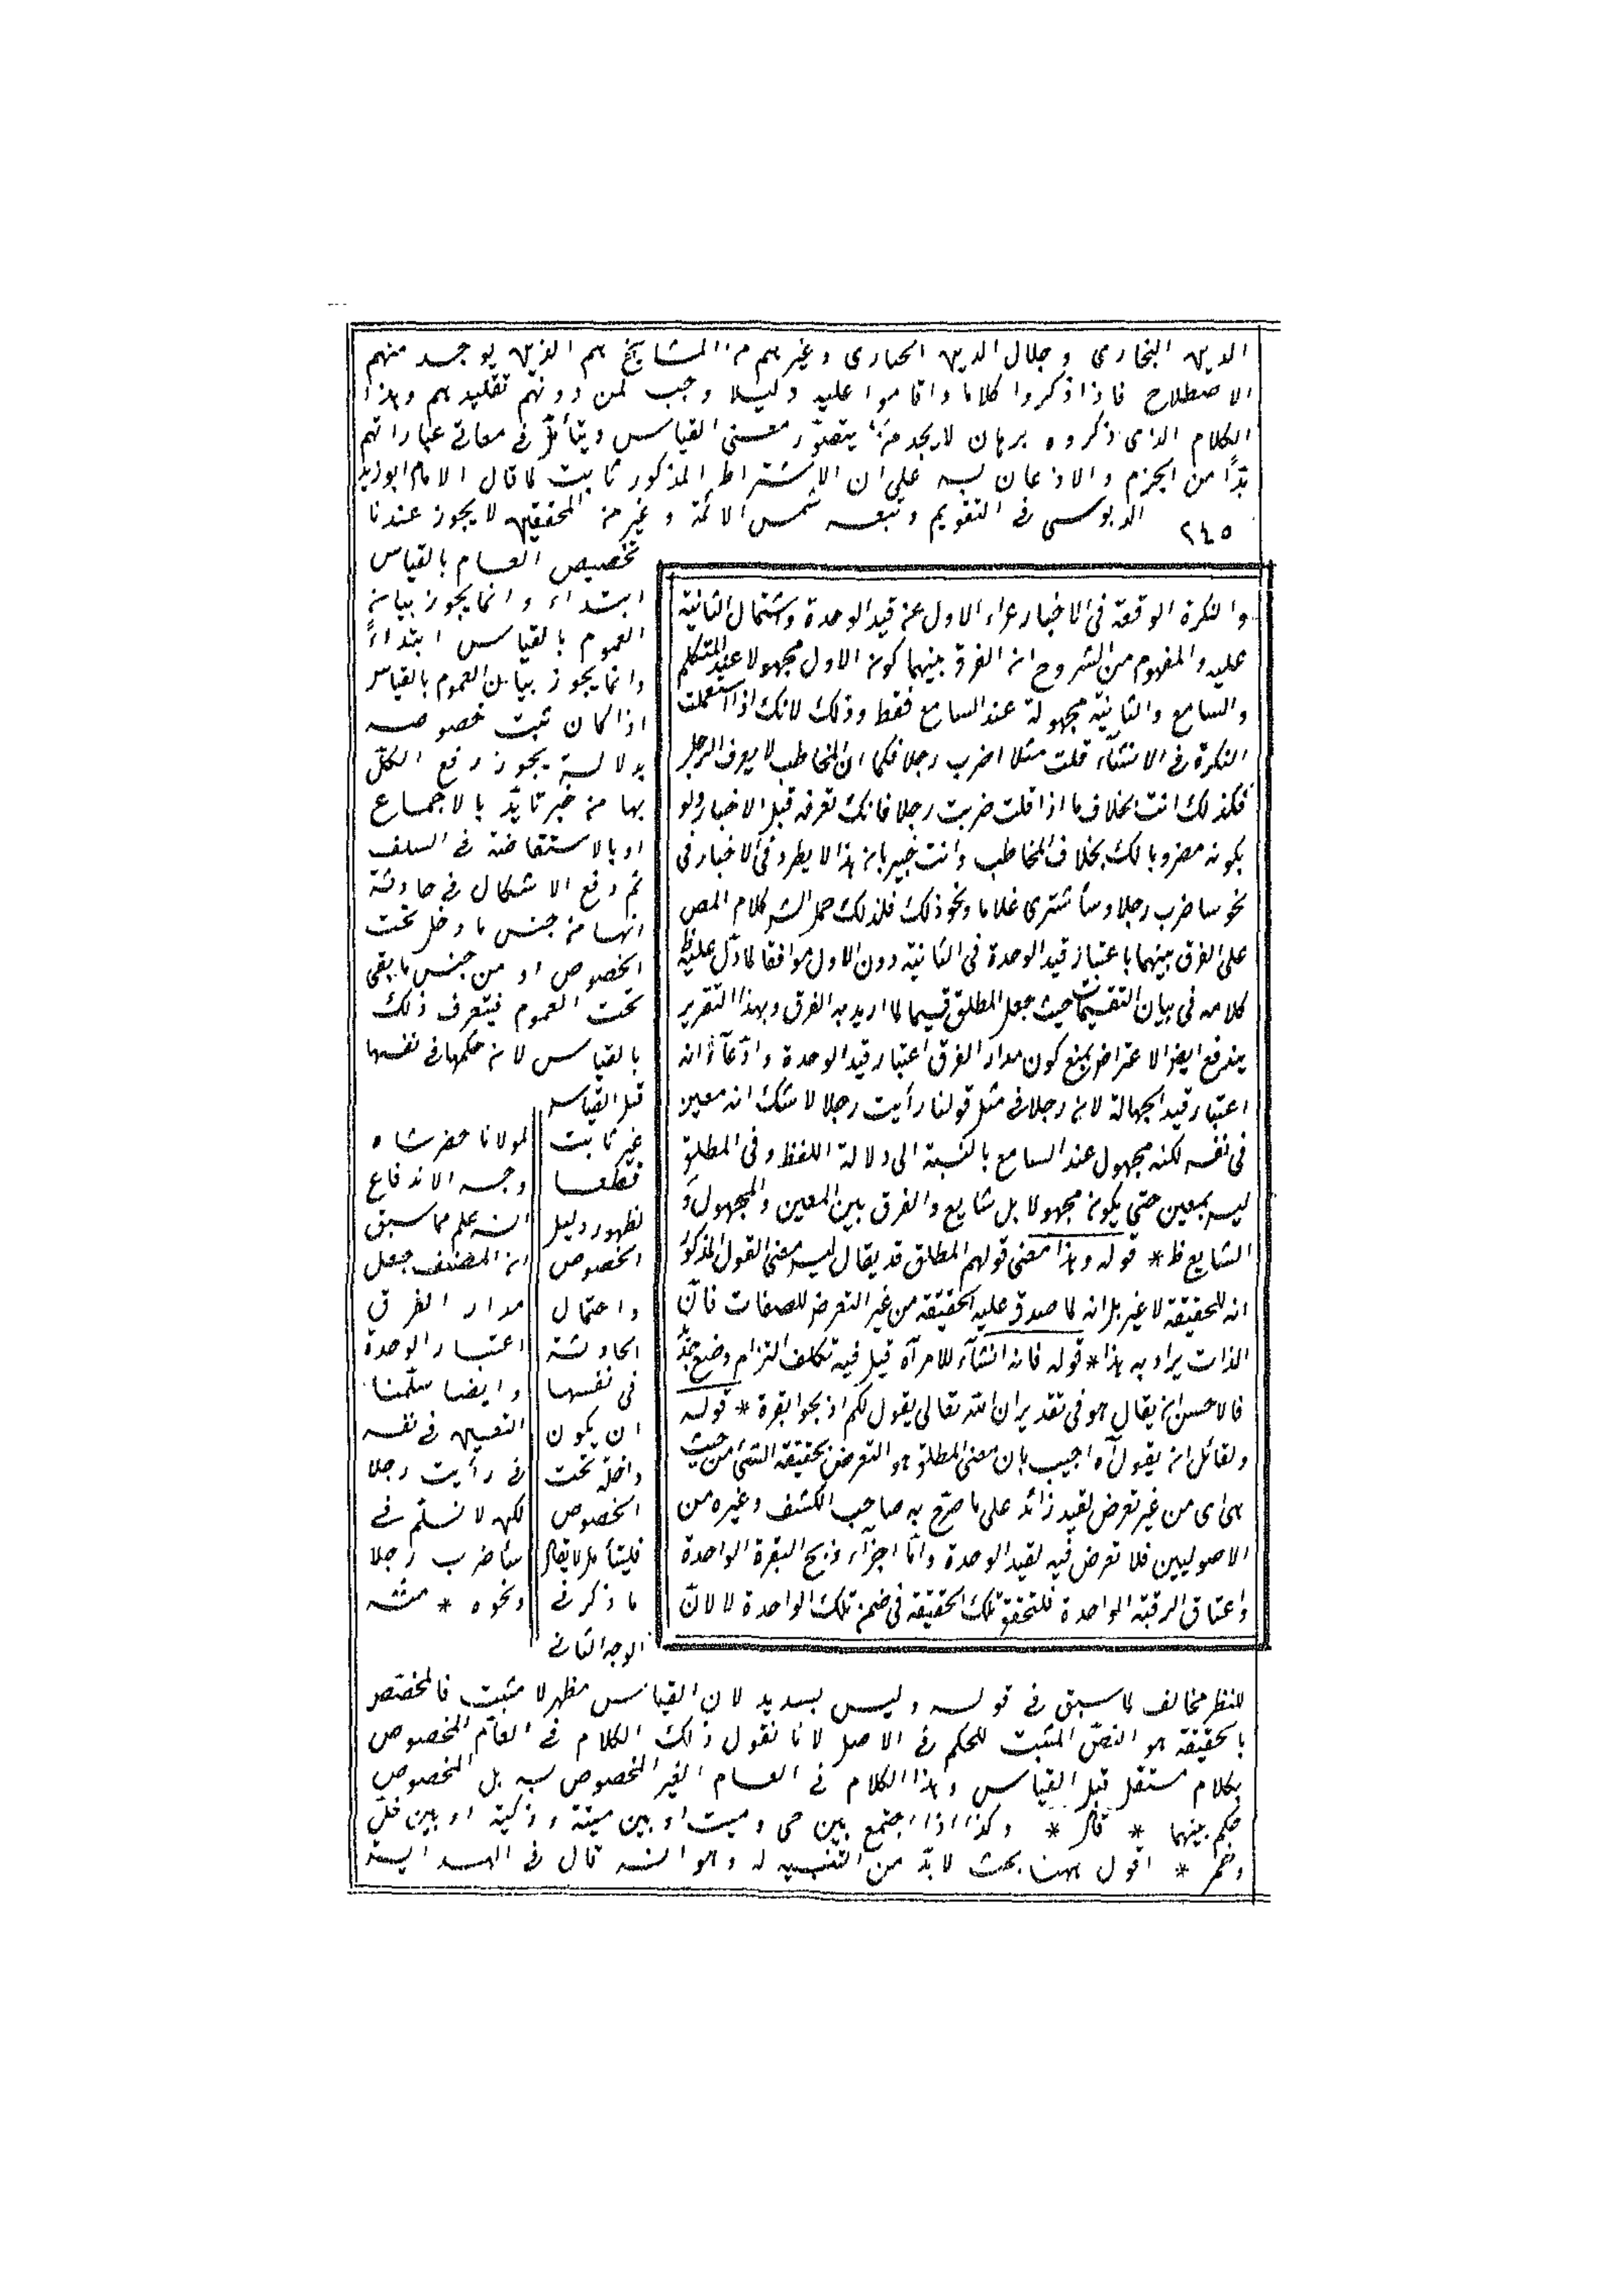 الدين البخارى وجلال الدين الخبازى وغيرهم من المشايخ هم الذين يوجد منهم
الاصطلاح فاذا ذكروا كلاما واقاموا عليه دليلا وجب لمن دونهم تقليدهم وهذا
الكلام الذى ذكروه برهان لا يجد من يتصور معنى القياس ويتأمل فى معانى عباراتهم
بدًا من الجزم والاذعان به على ان الاشتراط المذكور ثابت لما قال الامام ابو زيد
الدبوسى فى التقويم وتبعه شمس الائمة وغيره من المحققين لا يجوز عندنا
٢٤٥
تخصيص العام بالقياس
ابتداء وانما يجوز بيان
العموم بالقياس ابتداءً
وانما يجوز بيان العموم بالقياس
اذا كان ثبت خصوصه
بدلالة يجوز رفع الكل
بها من خبر تأيد بالاجماع
او بالاستفاضة فى السلف
ثم وقع الاشكال فى حادثة
انها من جنس ما دخل تحت
الخصوص او من جنس ما بقى
تحت العموم فيتعرف ذلك
بالقياس لان حكمها فى نفسها
قبل القياس
غير ثابت
قطعا
لظهور دليل
الخصوص
واحتمال
الحادثة
فى نفسها
ان يكون
داخلة تحت
الخصوص
فليتأمل لا يقال
ما ذكر فى
الوجه الثانى
للنظر مخالف لما سبق فى قوله وليس بسديد لان القياس مظهر لا مثبت فالمخصص
بالحقيقة هو النص المثبت للحكم فى الاصل لانا نقول ذلك الكلام فى العام المخصوص
بكلام مستقل قبل القياس وهذا الكلام فى العام الغير المخصوص به بل المخصوص
حكم بينهما * قال * وكذا اذا اجتمع بين حى وميت او بين ميتة وذكية او بين خل
وخمر * اقول ههنا بحث لا بد من التنبيه له وهو انه قال فى الهداية
والنكرة الوقعة فى الاخبار عراء الاول عن قيد الوحدة واشتمال الثانية
عليه والمفهوم من الشروح ان الفرق بينهما كون الاول مجهولا عند المتكلم
والسامع والثانية مجهولة عند السامع فقط وذلك لانك اذا استعملت
النكرة فى الانشآء قلت مثلا اضرب رجلا فكما ان المخاطب لا يعرف الرجل
فكذلك انت بخلاف ما اذا قلت ضربت رجلا فانك تعرفه قبل الاخبار ولو
بكونه مضروبا لك بخلاف المخاطب وانت خبير بان هذا لا يطرد فى الاخبار فى
نحو ساضرب رجلا وسأشترى غلاما ونحو ذلك فلذلك حمل الشر كلام المص
على الفرق بينهما باعتبار قيد الوحدة فى الثانية دون الاول موافقا لما دل عليه ظ
كلامه فى بيان التقسيمات حيث جعل المطلق قسيما لما اريد به الفرق وبهذا التقرير
يندفع ايضا الاعتراض بمنع كون مدار الفرق اعتبار قيد الوحدة وادعآؤ انه
اعتبار قيد الجهالة لان رجلا فى مثل قولنا رأيت رجلا لا شك انه معين
فى نفسه لكنه مجهول عند السامع بالنسبة الى دلالة اللفظ وفى المطلق
ليس بمعين حتى يكون مجهولا بل شايع والفرق بين المعين والمجهول و
الشايع ظ * قوله وهذا معنى قولهم المطلق قد يقال ليس معنى القول المذكور
انه للحقيقة لا غير بل انه لما صدق عليه الحقيقة من غير التعرض للصفات فان
الذات يراد به هذا * قوله فانه انشآء للامر آه قيل فيه تكلف التزام وضع جديد
فالاحسن ان يقال هو فى تقدير ان الله تعالى يقول لكم اذبحوا بقرة * قوله
ولقائل ان يقول آه اجيب بان معنى المطلق هو التعرض بحقيقة الشئ من حيث
هى اى من غير تعرض لقيد زائد على ما صرح به صاحب الكشف وغيره من
الاصوليين فلا تعرض فيه لقيد الوحدة واما اجزآء ذبح البقرة الواحدة
واعتاق الرقبة الواحدة فلتحقق تلك الحقيقة فى ضمن تلك الواحدة لا لان
لمولانا خضر شاه
وجه الاندفاع
انه علم مما سبق
ان المصنف جعل
مدار الفرق
اعتبار الوحدة
وايضا سلمنا
التعيين فى نفسه
فى رأيت رجلا
لكن لا نسلم فى
سأضرب رجلا
ونحوه * منه